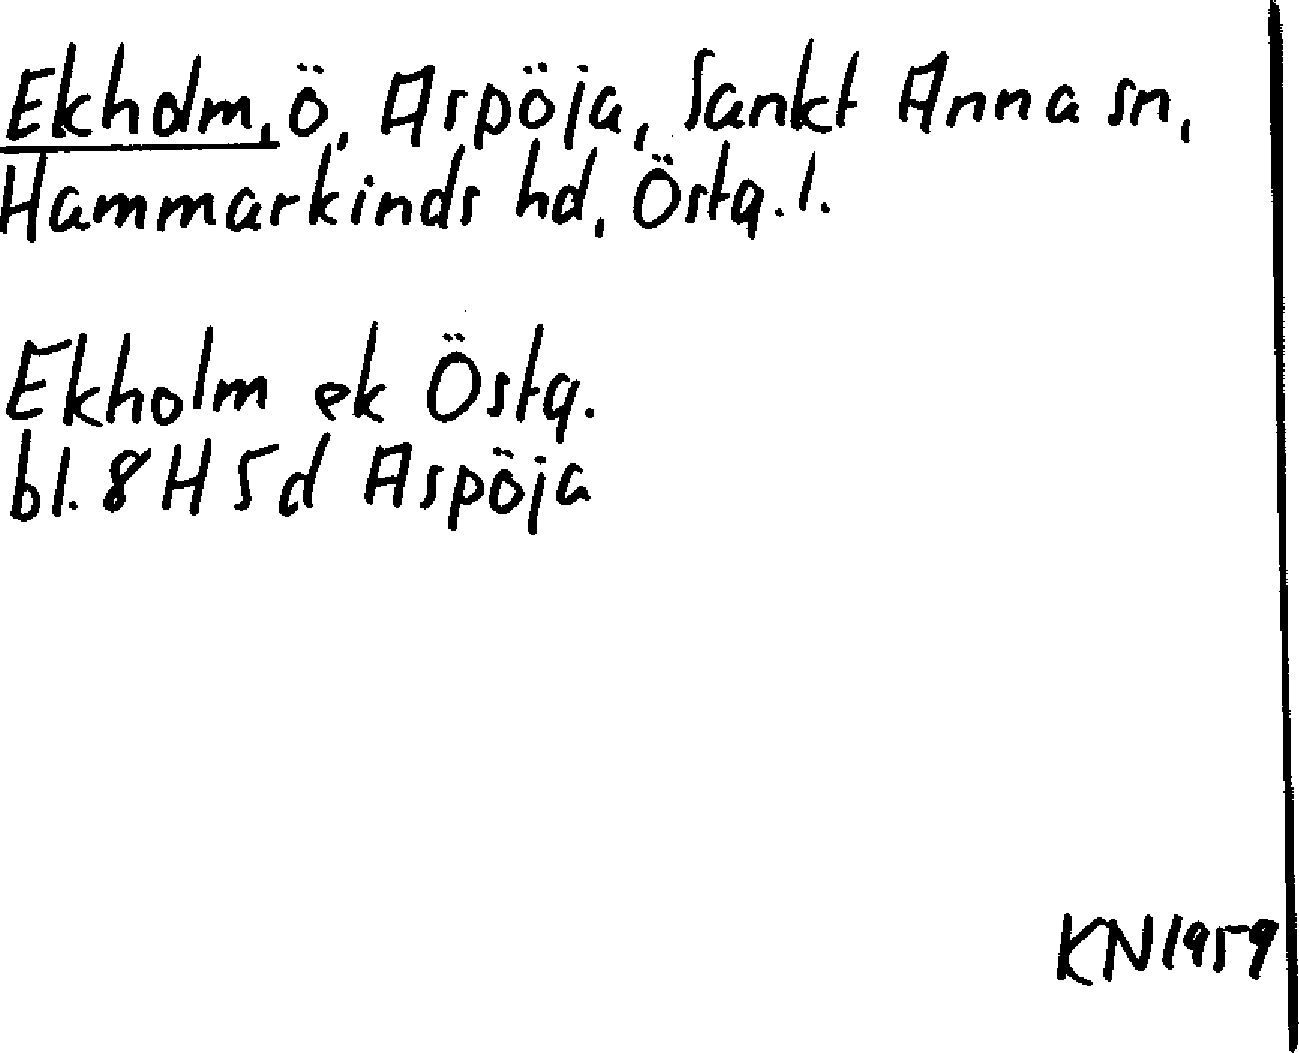 Ekholm, ö, Aspöja, Sankt Anna sn,
Hammarkinds hd, Östg. l.
Ekholm ek Östg.
bl. 8H 5d Aspöja
KN1959